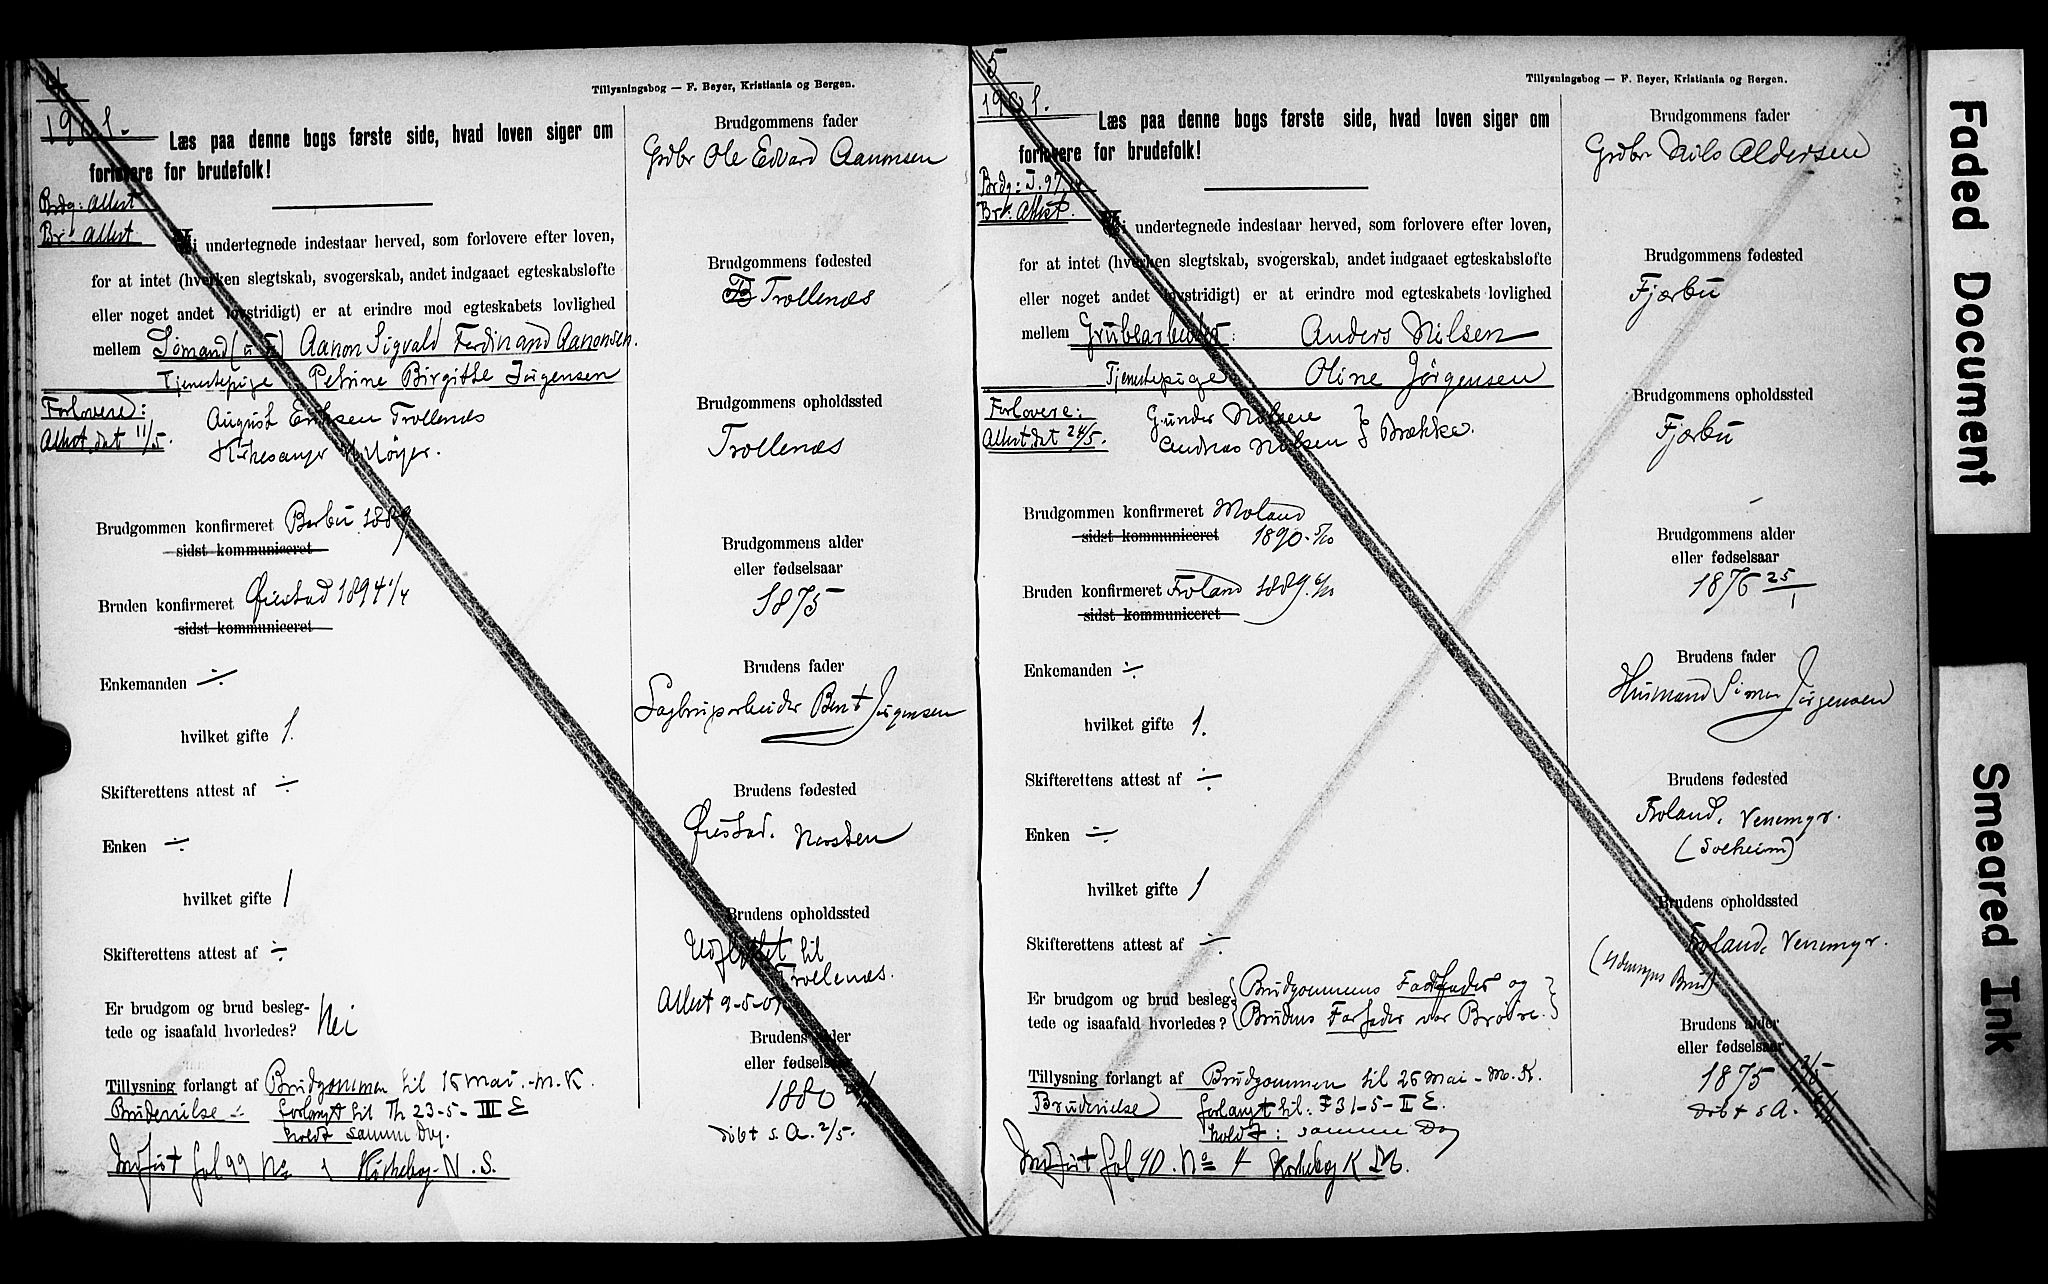 4
1901.
Tillysningsbog — F. Beyer, Kristiania og Bergen.
Læs paa denne bogs første side, hvad loven siger om
forlovere for brudefolk!
Brdg: Attest
Br: Attest
Vi undertegnede indestaar herved, som forlovere efter loven,
for at intet (hverken slegtskab, svogerskab, andet indgaaet egteskabsløfte
eller noget andet lovstridigt) er at erindre mod egteskabets lovlighed
mellem Sømand Aanon Sigvald Ferdinand Aanonsen.
Tjenestepige Petrine Birgitte Jørgensen
Forlovere: August Eriksen Trollenes
Attest, dat 11/5. Kirkesanger
Brudgommen konfirmeret Barbu 1889
sidst kommuniceret
Bruden konfirmeret Øiestad 1894 1/4
sidst kommuniceret
Enkemanden ÷
hvilket gifte 1.
Skifterettens attest af ÷
Enken ÷
hvilket gifte 1
Skifterettens attest af ÷
Er brudgom og brud besleg-
tede og isaafald hvorledes? Nei
Tillysning forlangt af Brudgommen til 15 Mai. - M. K.
Brudevielse forlangt til Th 23-5- III E
holdt samme Dag.
Indført fol 99 No 1 Kirkebog N. S.
Brudgommens fader
Grdbr Ole Edvard Aanonsen
Brudgommens fødested
Trollenes
Brudgommens opholdssted
Trollenes
Brudgommens alder
eller fødselsaar
1875
Brudens fader
Sagbrugsarbeider Bent Jørgensen
Brudens fødested
Øiestad. Nersten
Brudens opholdssted
Udflyttet til
Trollenes.
Attest 9-5-01
Brudens alder
eller fødselsaar
1880
døbt s. A. 2/5.
5
1901.
Tillysningsbog — F. Beyer, Kristiania og Bergen.
Læs paa denne bogs første side, hvad loven siger om
forlovere for brudefolk!
Brdg: J. 97
Br. Attest.
Vi undertegnede indestaar herved, som forlovere efter loven,
for at intet (hverken slegtskab, svogerskab, andet indgaaet egteskabsløfte
eller noget andet lovstridigt) er at erindre mod egteskabets lovlighed
mellem Grubearbeider: Anders Nilsen
Tjenestepige Oline Jørgensen
Forlovere: Gunder Nilsen
Attest dat 24/5. Andreas Nilsen } Brække.
Brudgommen konfirmeret Moland
sidst kommuniceret 1890. 5/10
Bruden konfirmeret Froland 1889. 6/10
sidst kommuniceret
Enkemanden ÷
hvilket gifte 1.
Skifterettens attest af ÷
Enken ÷
hvilket gifte 1
Skifterettens attest af ÷
Er brudgom og brud besleg- { Brudgommens Farfader og }
tede og isaafald hvorledes? { Brudens Farfader var Brødre. }
Tillysning forlangt af Brudgommen til 26 Mai - M. K.
Brudevielse forlangt til: F 31-5- II E.
holdt: samme Dag
Indført fol 90. No 4 Kirkebog K M.
Brudgommens fader
Grdbr Nils Aldersen
Brudgommens fødested
Fjærbu
Brudgommens opholdssted
Fjærbu
Brudgommens alder
eller fødselsaar
1876 25/1
Brudens fader
Husmand Simon Jørgensen
Brudens fødested
Froland, Venemyr.
(Solheim)
Brudens opholdssted
Froland, Venemyr.
Brudens alder
eller fødselsaar
1875 12/5
døbt s A.
Faded Document
Smeared Ink